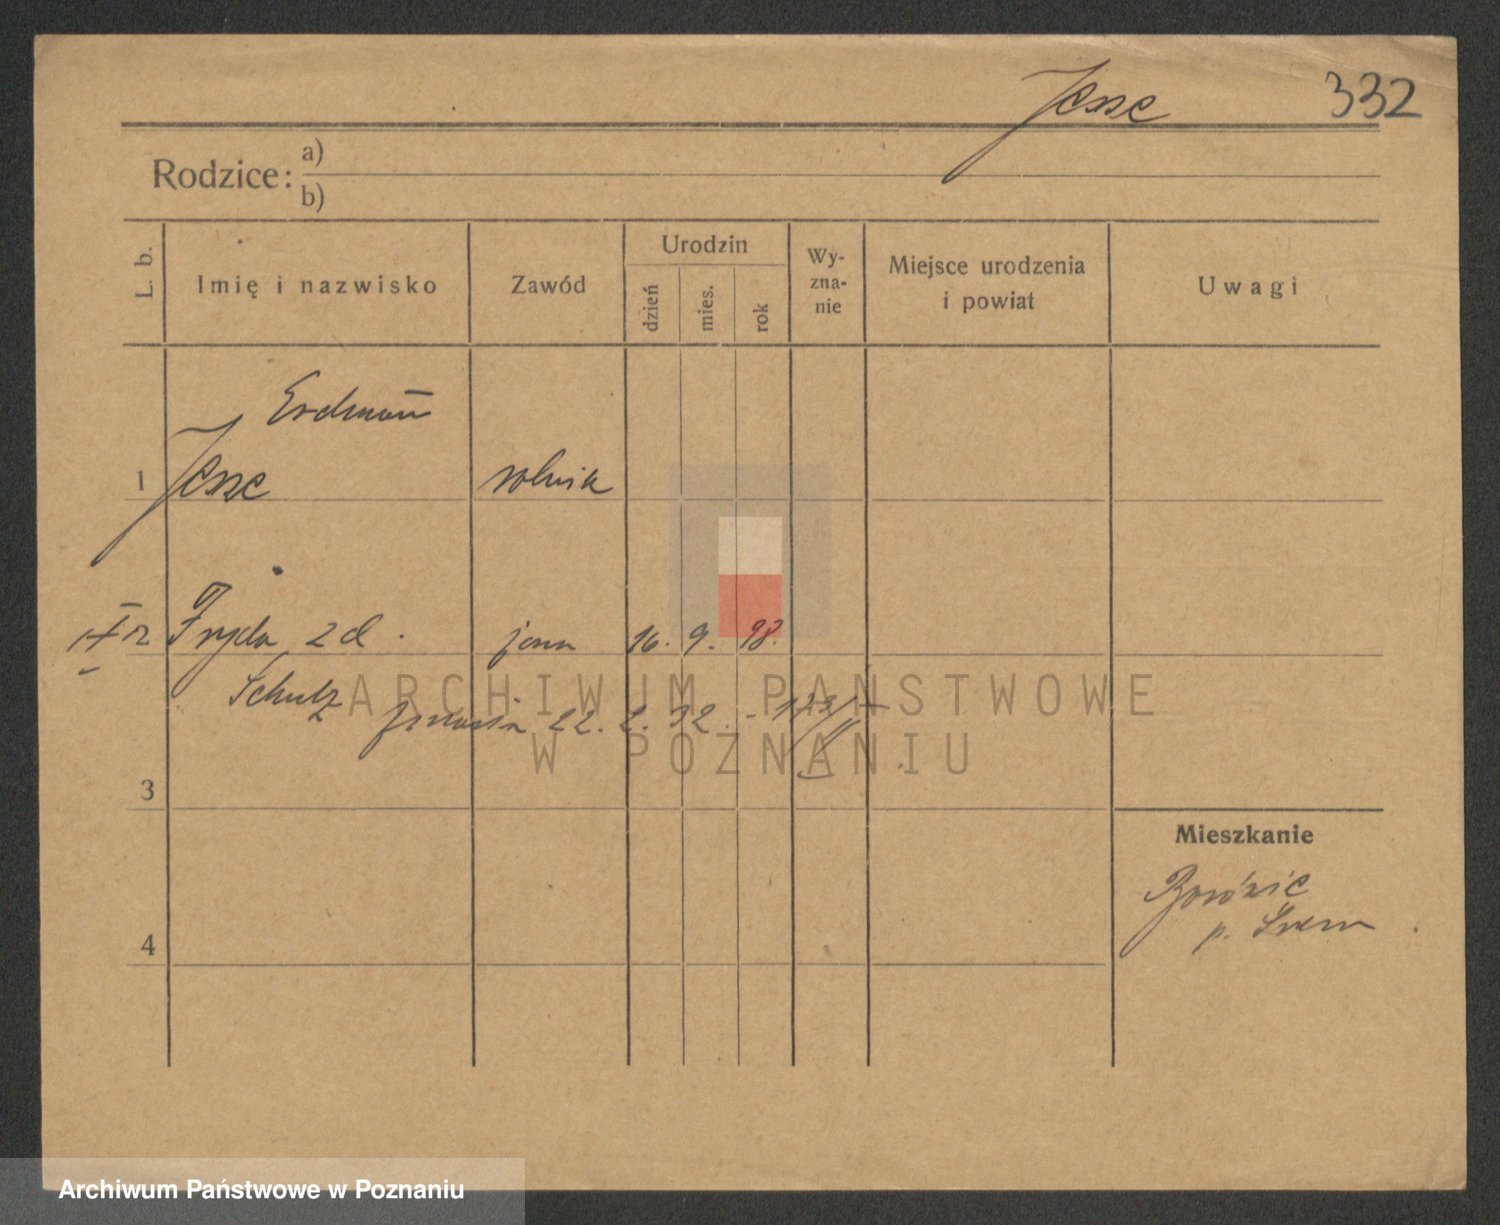 Jesse 332
Rodzice:
a)
b)
L. b.
Imię i nazwisko
Zawód
Urodzin
dzień
mies.
rok
Wy-
zna-
nie
Miejsce urodzenia
i powiat
Uwagi
Erdman̄
1 Jesse rolnik
2 Fryda z d. żona 16. 9. 98.
Schulz
22. 2. 32.
3
Mieszkanie
p. Śrem
4
ARCHIWUM PAŃSTWOWE
W POZNANIU
Archiwum Państwowe w Poznaniu